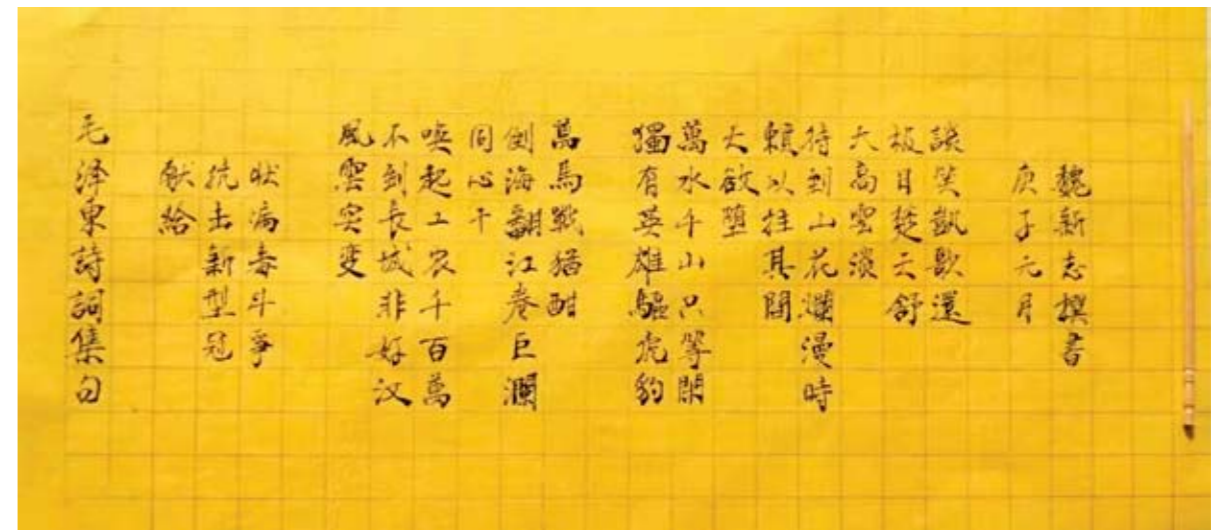 毛泽東詩詞集句
献給
抗击新型冠
状病毒斗爭
風雲突变
不到長城非好汉
唤起工农千百萬
同心干
倒海翻江卷巨瀾
萬馬戰猶酣
獨有英雄驅虎豹
萬水千山只等閑
天欲墮
賴以拄其間
待到山花爛漫時
天高雲淡
极目楚天舒
談笑凱歌還
庚子元月
魏新志撰書